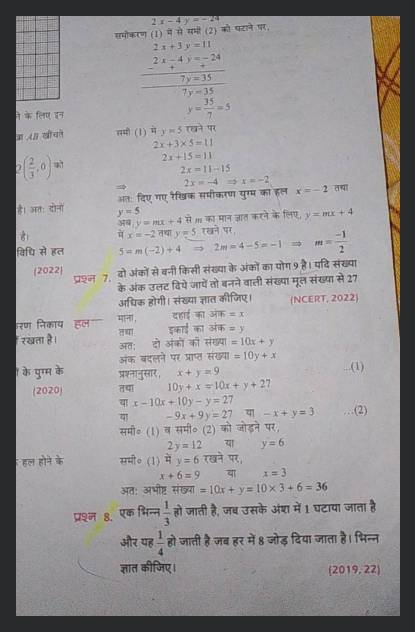 2x - 4y = -24
समीकरण (1) में से समी (2) को घटाने पर,
2x + 3y = 11
2x - 4y = -24
- + +
7y = 35
7y = 35
y = 35/7 = 5
ने के लिए इन
खा AB खींचते
समी (1) में y = 5 रखने पर
2x + 3 × 5 = 11
2x + 15 = 11
(2/3, 0) को
2x = 11 - 15
⇒ 2x = -4 ⇒ x = -2
अतः दिए गए रैखिक समीकरण युग्म का हल x = -2 तथा
y = 5
है। अतः दोनों
अब, y = mx + 4 से m का मान ज्ञात करने के लिए, y = mx + 4
है।
में x = -2 तथा y = 5 रखने पर,
विधि से हल
5 = m(-2) + 4 ⇒ 2m = 4 - 5 = -1 ⇒ m = -1/2
(2022)
प्रश्न 7. दो अंकों से बनी किसी संख्या के अंकों का योग 9 है। यदि संख्या
के अंक उलट दिये जायें तो बनने वाली संख्या मूल संख्या से 27
अधिक होगी। संख्या ज्ञात कीजिए। (NCERT, 2022)
करण निकाय
हल— माना, दहाई का अंक = x
रखता है।
तथा इकाई का अंक = y
अतः दो अंकों की संख्या = 10x + y
अंक बदलने पर प्राप्त संख्या = 10y + x
के युग्म के
प्रश्नानुसार, x + y = 9 ...(1)
(2020)
तथा 10y + x = 10x + y + 27
या x - 10x + 10y - y = 27
या -9x + 9y = 27 या -x + y = 3 ...(2)
समी० (1) व समी० (2) को जोड़ने पर,
2y = 12 या y = 6
हल होने के
समी० (1) में y = 6 रखने पर,
x + 6 = 9 या x = 3
अतः अभीष्ट संख्या = 10x + y = 10 × 3 + 6 = 36
प्रश्न 8. एक भिन्न 1/3 हो जाती है, जब उसके अंश में 1 घटाया जाता है
और यह 1/4 हो जाती है जब हर में 8 जोड़ दिया जाता है। भिन्न
ज्ञात कीजिए। (2019, 22)